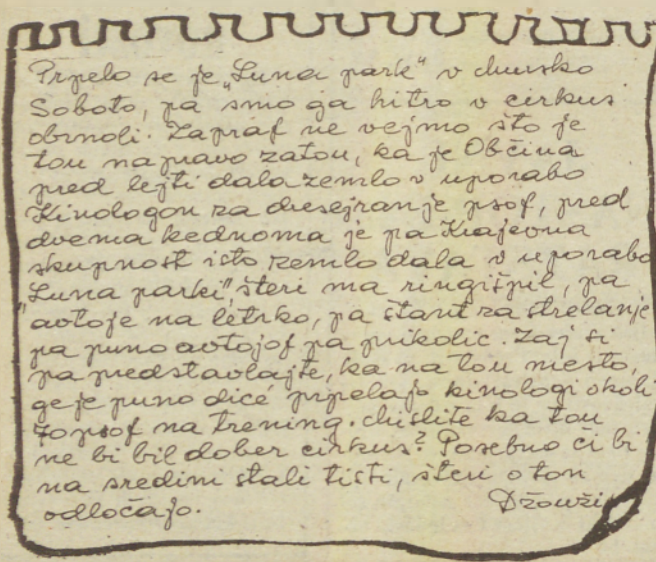 Prpelo se je „Luna park“ v Mursko
Soboto, pa smo ga hitro v cirkus
obrnoli. Zapraf ne vejmo što je
tou napravo zatou, ka je Občina
pred lejti dala zemlo v uporabo
Kinologon za dresejranje psof, pred
dvema kednoma je pa Krajevna
skupnost isto zemlo dala v uporabo
„Luna parki“, šteri ma ringišpil, pa
avtoje na letrko, pa štant za strelanje
pa puno avtojof pa prikolic. Zaj si
pa predstavlajte, ka na tou mesto,
ge je puno dicé prpelajo kinologi okoli
70 psof na trening. Mislite ka tou
ne bi bil dober cirkus? Posebno či bi
na sredini stali tisti, šteri o ton
odločajo.
Džouži